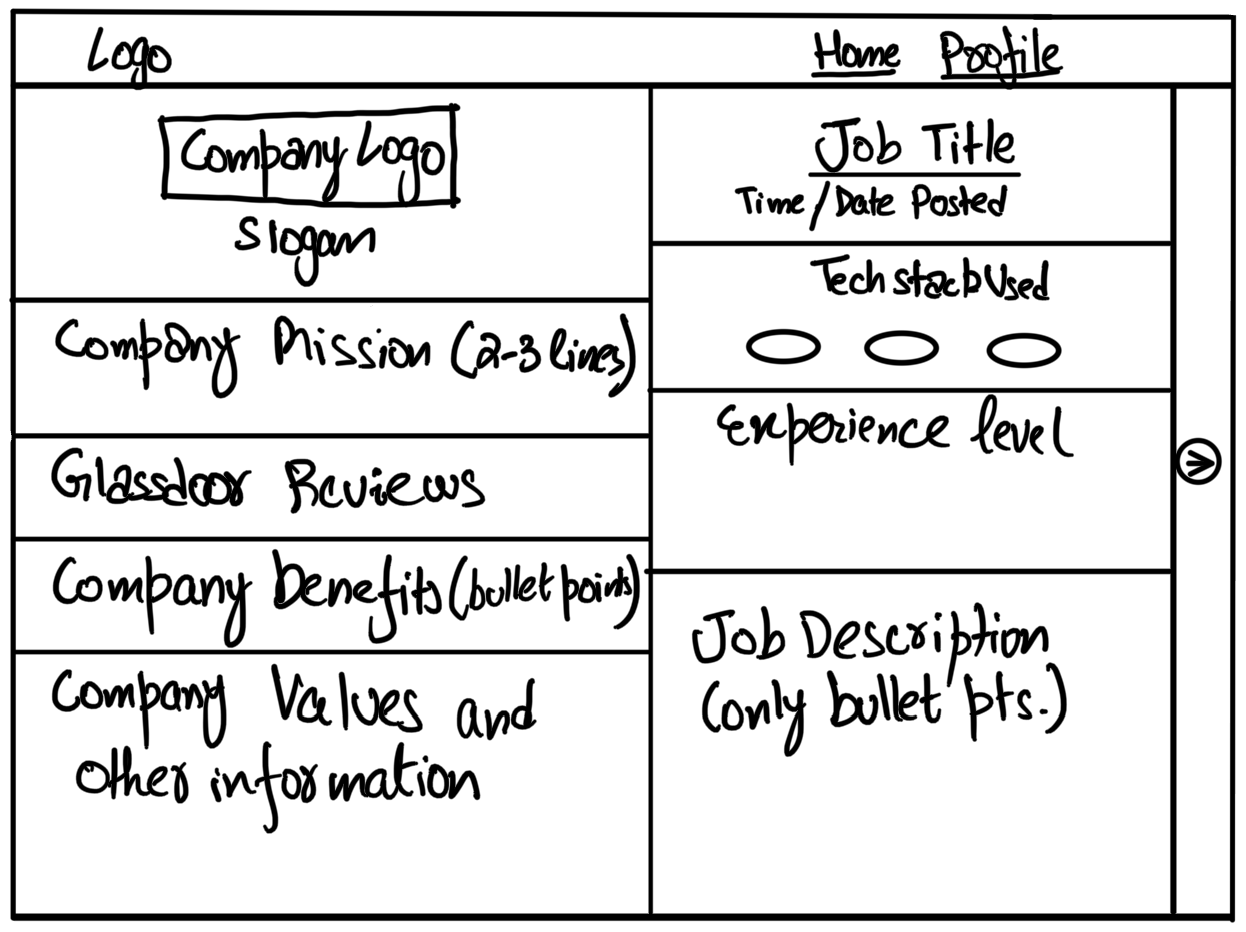 Logo
Home Profile
Company Logo
Slogan
Company Mission (2-3 lines)
Glassdoor Reviews
Company Benefits (bullet points)
Company Values and
other information
Job Title
Time/Date Posted
Tech stack Used
Experience level
Job Description
(only bullet pts.)